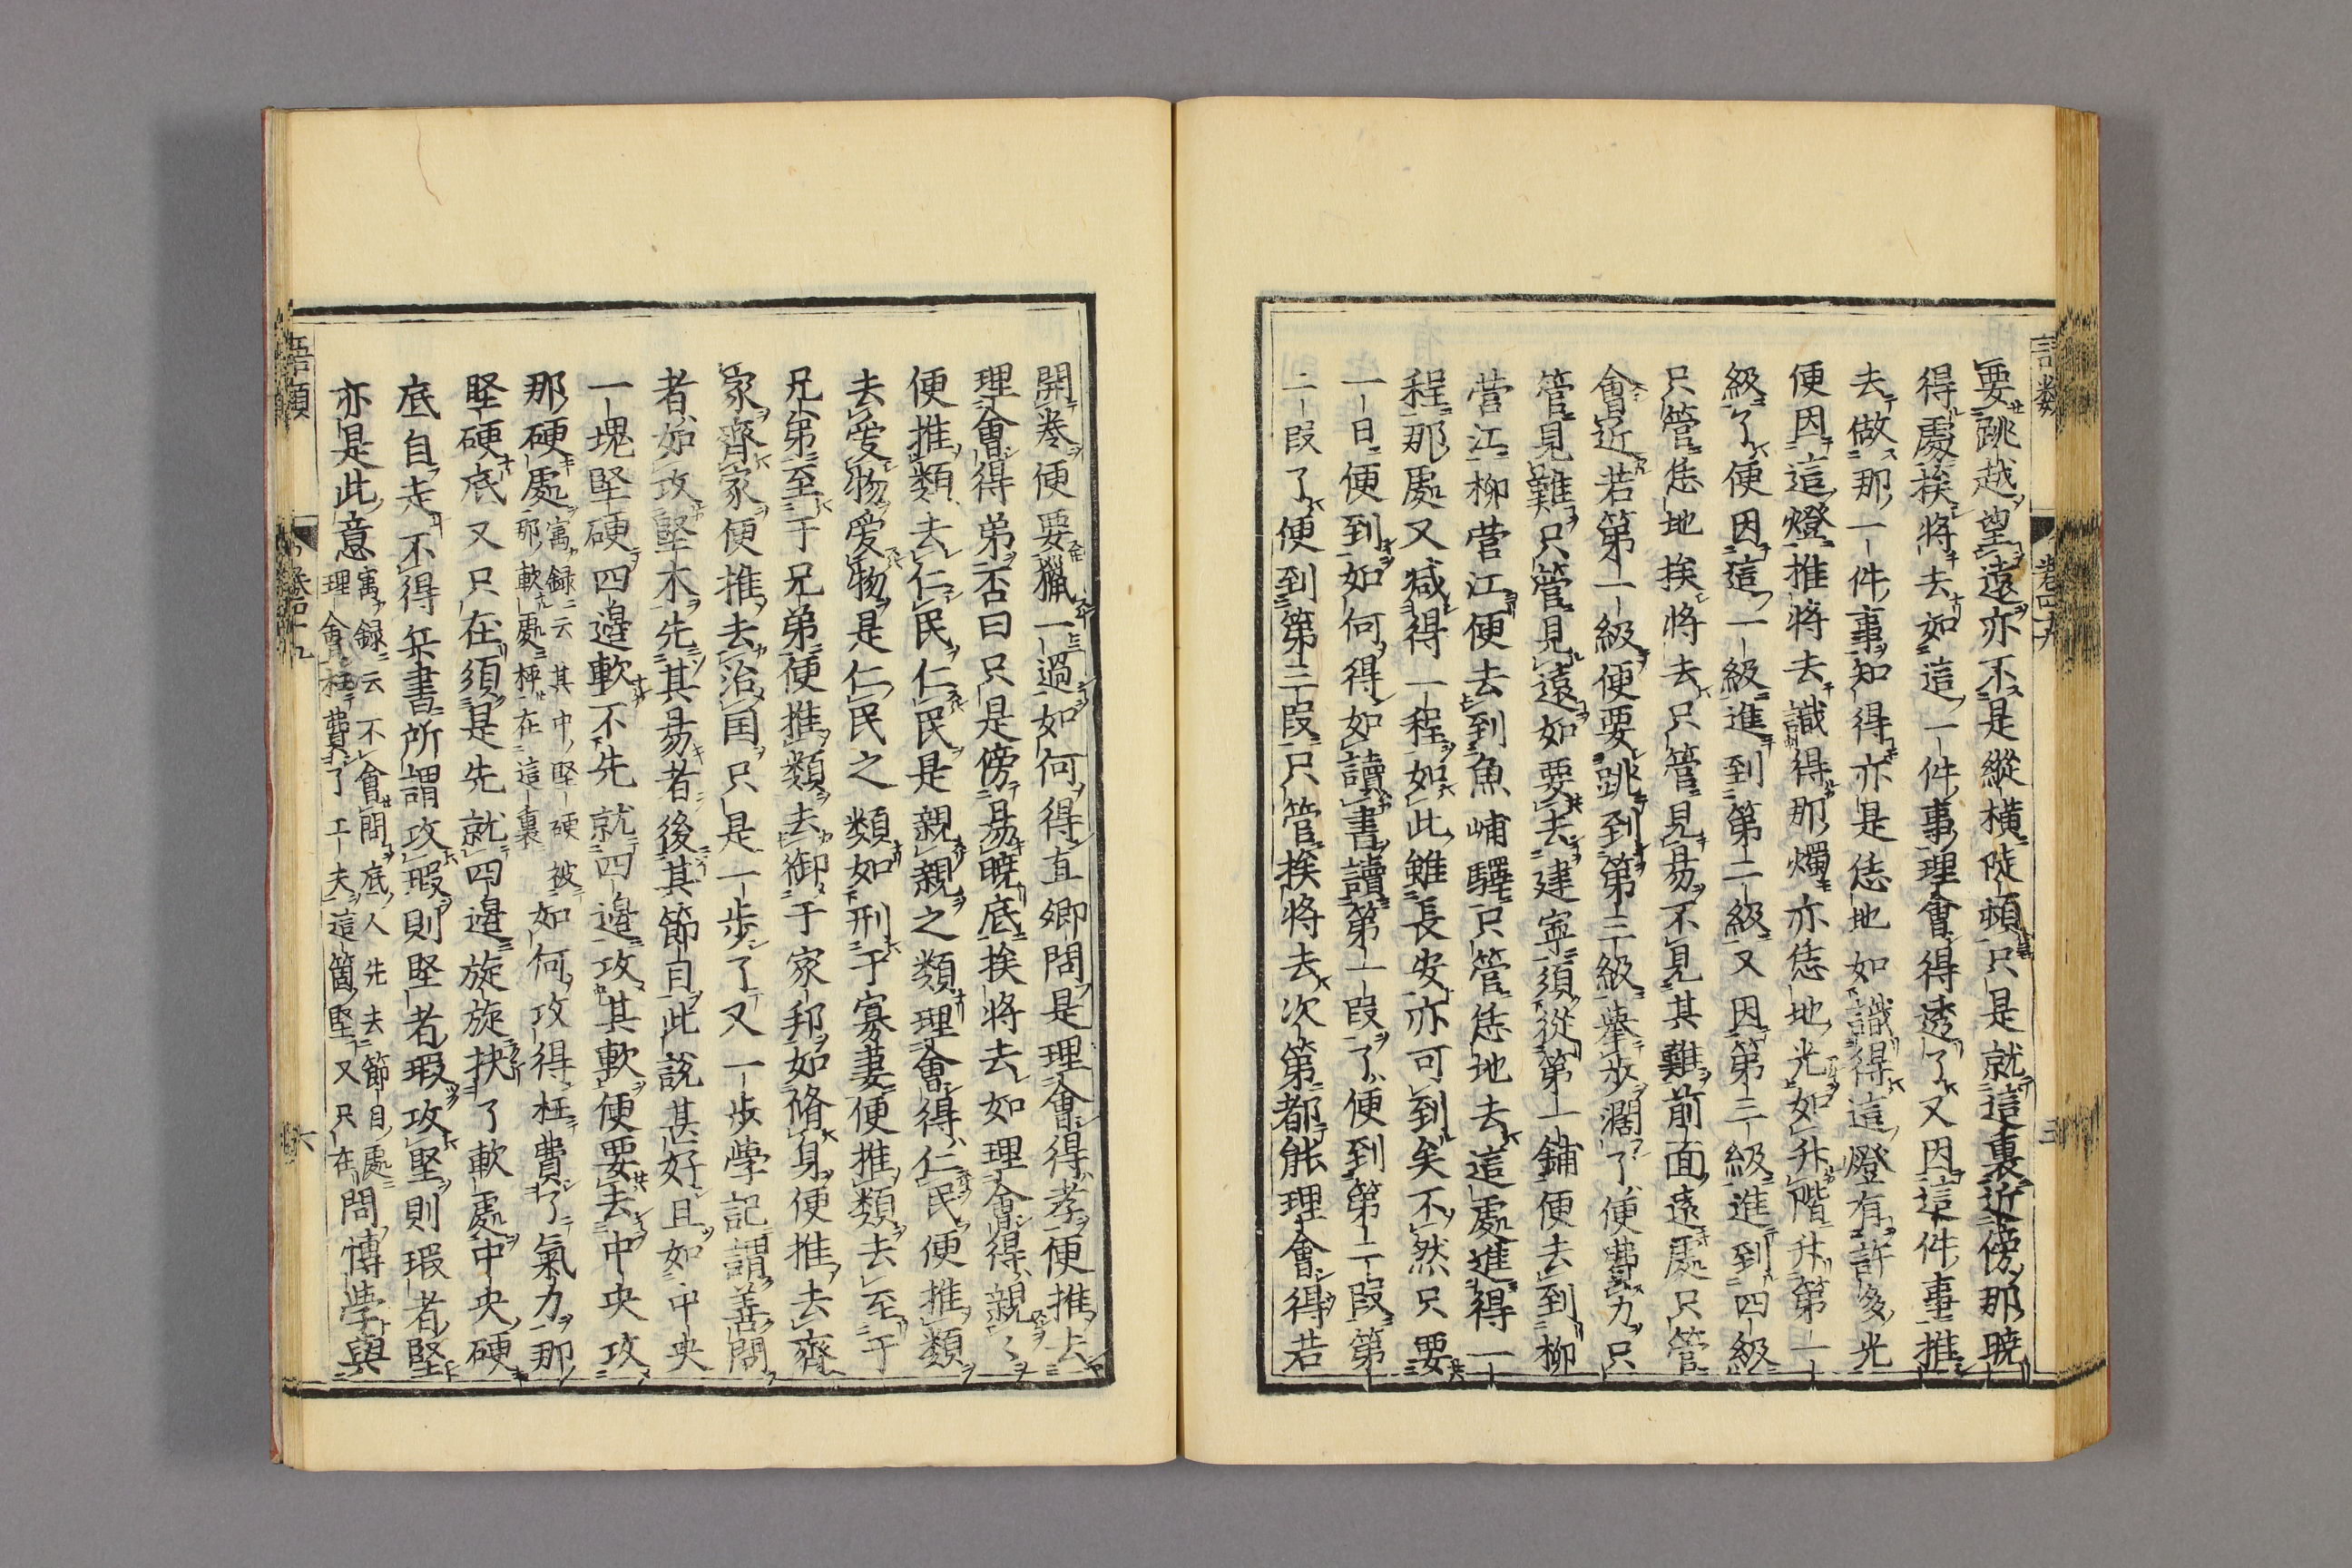 要跳越望遠亦不是縱橫陡頓只是就這裏近傍那曉
得處挨將去如這一件事理會得透了又因這件事推
去做那一件事知得亦是恁地如識得這燈有許多光
便因這燈推將去識得那燭亦恁地光如升階升第一
級了便因這一級進到第二級又因第二級進到四級
只管恁地挨將去只管見易不見其難前面遠處只管
會近若第一級便要跳到第三級舉步濶了便費力只
管見難只管見遠如要去建寧須從第一鋪便去到柳
營江柳營江便去到魚峬驛只管恁地去這處進得一
程那處又減得一程如此雖長安亦可到矣不然只要
一日便到如何得如讀書讀第一段了便到第二段第
二段了便到第三段只管挨將去次第都能理會得若
開卷便要獵一過如何得直卿問是理會得孝便推去
理會得弟否曰只是傍易曉底挨將去如理會得親〻
便推類去仁民仁民是親親之類理會得仁民便推類
去愛物愛物是仁民之類如刑于寡妻便推類去至于
兄弟至于兄弟便推類去御于家邦如脩身便推去齊
家齊家便推去治国只是一步了又一步學記謂善問
者如攻堅木先其易者後其節目此說甚好且如中央
一塊堅硬四邊軟不先就四邊攻其軟便要去中央攻
那硬處寓録云其中堅硬被
那軟處枰在這裏如何攻得枉費了氣力那
堅硬底又只在須是先就四邊旋旋抉了軟處中央硬
底自走不得兵書所謂攻瑕則堅者瑕攻堅則瑕者堅
亦是此意寓録云不會問底人先去節目處
理會枉費了工夫這箇堅又只在問博學與
語類
卷四十九